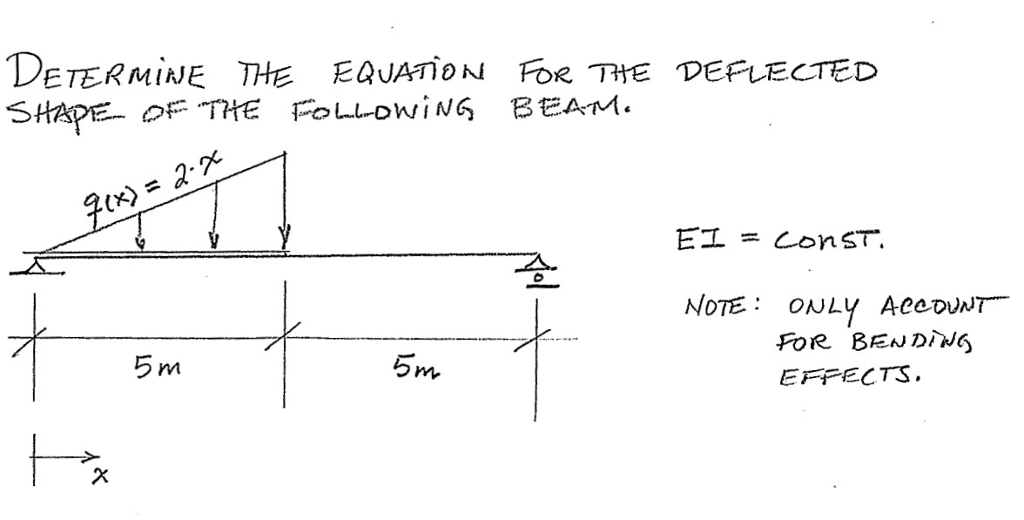 DETERMINE THE EQUATION FOR THE DEFLECTED
SHAPE OF THE FOLLOWING BEAM.
q(x) = 2·x
EI = CONST.
NOTE: ONLY ACCOUNT
FOR BENDING
EFFECTS.
5m
5m
x